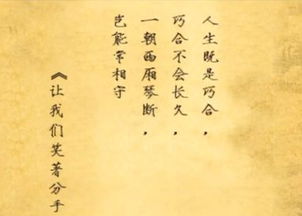 人生既是巧合，
巧合不会长久，
一朝西厢琴断，
岂能常相守
《让我们笑著分手